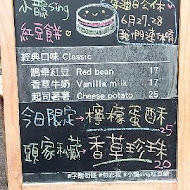 小龍sing
紅豆餅
6/27.28
我們連休
經典口味 Classic
鵝牽紅豆 Red bean 17
香草牛奶 Vanilla milk 17
起司薯薯 Cheese potato 25
今日限定→檸檬蛋酥 25
頭家私藏→香草珍珠 20